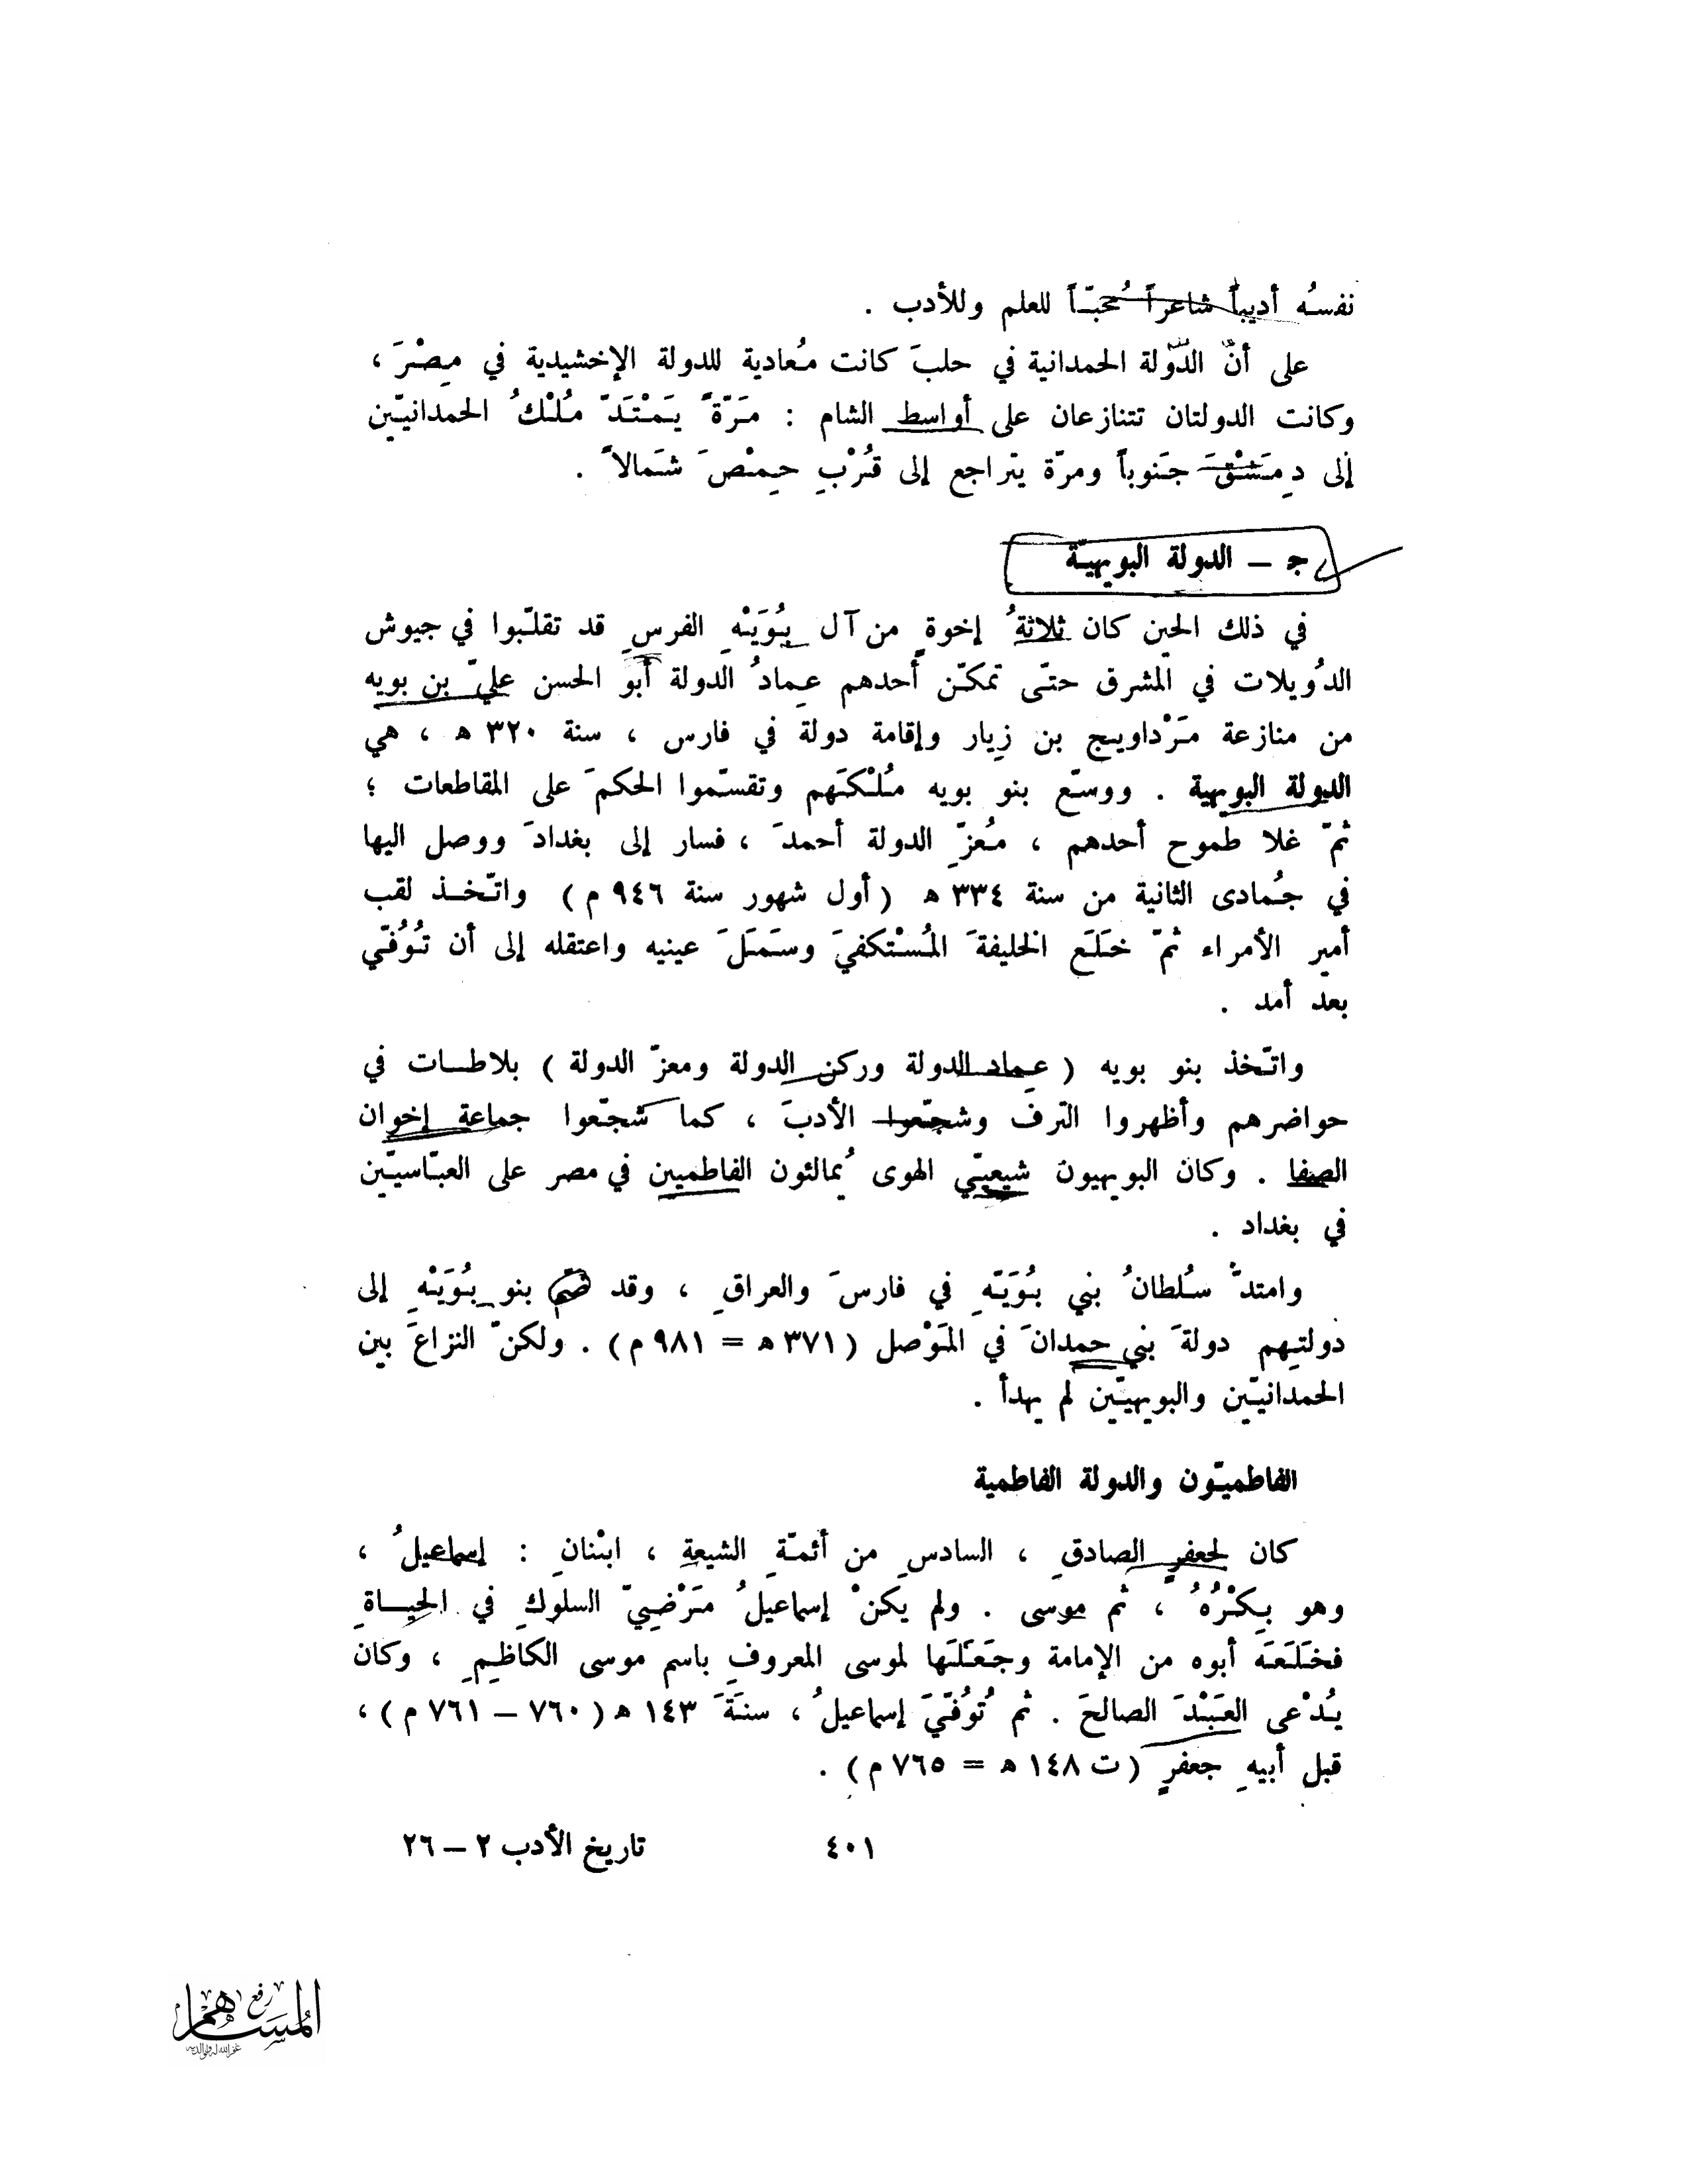 نفسُه أديباً شاعراً مُحبّاً للعلم وللأدب .
على أنّ الدَّوْلة الحمدانية في حلبَ كانت مُعادية للدولة الإخشيدية في مِصْرَ ،
وكانت الدولتان تتنازعان على أواسط الشام : مَرّةً يَمْتَدّ مُلْكُ الحمدانيّين
إلى دِمَشْقَ جَنوباً ومرّة يتراجع إلى قُرْبِ حِمْصَ شَمالاً .
ج – الدولة البويهيّة
في ذلك الحين كان ثلاثةُ إخوةٍ من آل بُوَيْهِ الفرسِ قد تقلّبوا في جيوش
الدُويلات في المشرق حتّى تمكّن أحدهم عِمادُ الدولة أبو الحسن عليّ بن بويه
من منازعة مَرْداويج بن زِيار وإقامة دولة في فارس ، سنة ٣٢٠ ه ، هي
الدولة البويهية . ووسّع بنو بويه مُلْكَهم وتقسّموا الحكمَ على المقاطعات ؛
ثمّ غلا طموح أحدهم ، مُعزِّ الدولة أحمدَ ، فسار إلى بغدادَ ووصل اليها
في جُمادى الثانية من سنة ٣٣٤ ه ( أول شهور سنة ٩٤٦ م ) واتّخذ لقب
أمير الأمراء ثمّ خَلَع الخليفةَ المُسْتكفيَ وسَمَلَ عينيه واعتقله إلى أن تُوُفّي
بعد أمد .
واتّخذ بنو بويه ( عماد الدولة وركن الدولة ومعزّ الدولة ) بلاطات في
حواضرهم وأظهروا الترف وشجّعوا الأدبَ ، كما شجّعوا جماعة إخوان
الصفا . وكان البويهيون شيعيّي الهوى يُمالئون الفاطميين في مصر على العبّاسيّين
في بغداد .
وامتدّ سُلطانُ بني بُوَيْهِ في فارسَ والعراقِ ، وقد ضمّ بنو بُوَيْهِ إلى
دولتِهم دولةَ بني حمدانَ في المَوْصل ( ٣٧١ ه = ٩٨١ م ) . ولكنّ النزاعَ بين
الحمدانيّين والبويهيّين لم يهدأ .
الفاطميّون والدولة الفاطمية
كان لجعفرٍ الصادقِ ، السادسِ من أئمّةِ الشيعةِ ، ابْنانِ : إسماعيلُ ،
وهو بِكْرُهُ ، ثم موسى . ولم يكنْ إسماعيلُ مَرْضِيّ السلوكِ في الحياةِ
فخَلَعَه أبوه من الإمامة وجَعَلَها لموسى المعروفِ باسم موسى الكاظِمِ ، وكان
يُدْعى العَبْدَ الصالحَ . ثم تُوُفّيَ إسماعيلُ ، سنةَ ١٤٣ ه ( ٧٦٠ – ٧٦١ م ) ،
قبل أبيهِ جعفرٍ ( ت ١٤٨ ه = ٧٦٥ م ) .
٤٠١ تاريخ الأدب ٢ – ٢٦
رفع
المساهم
غفر الله له ولوالديه